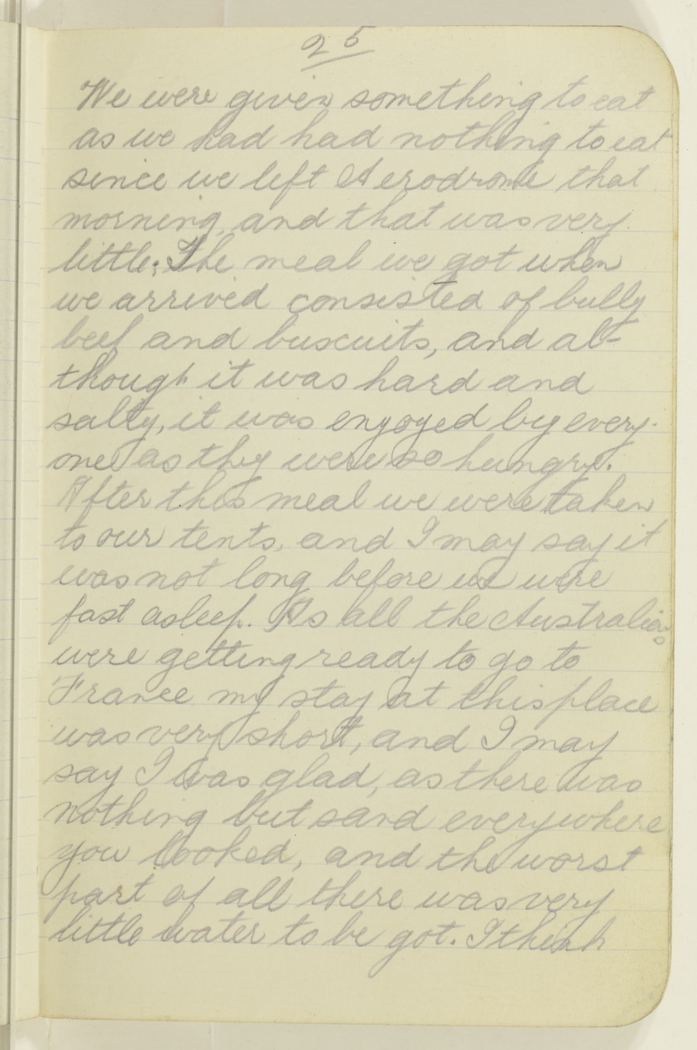 25
We were given something to eat
as we had had nothing to eat
since we left Aerodrome that
morning, and that was very
little; The meal we got when
we arrived consisted of bully
beef and buscuits, and al-
though it was hard and
salty, it was engoyed by every-
one as they were so hungry.
After this meal we were taken
to our tents, and I may say it
was not long before we were
fast asleep. As all the Australians
were getting ready to go to
France my stay at this place
was very short, and I may
say I was glad, as there was
nothing but sand everywhere
you looked, and the worst
part of all there was very
little water to be got. I think